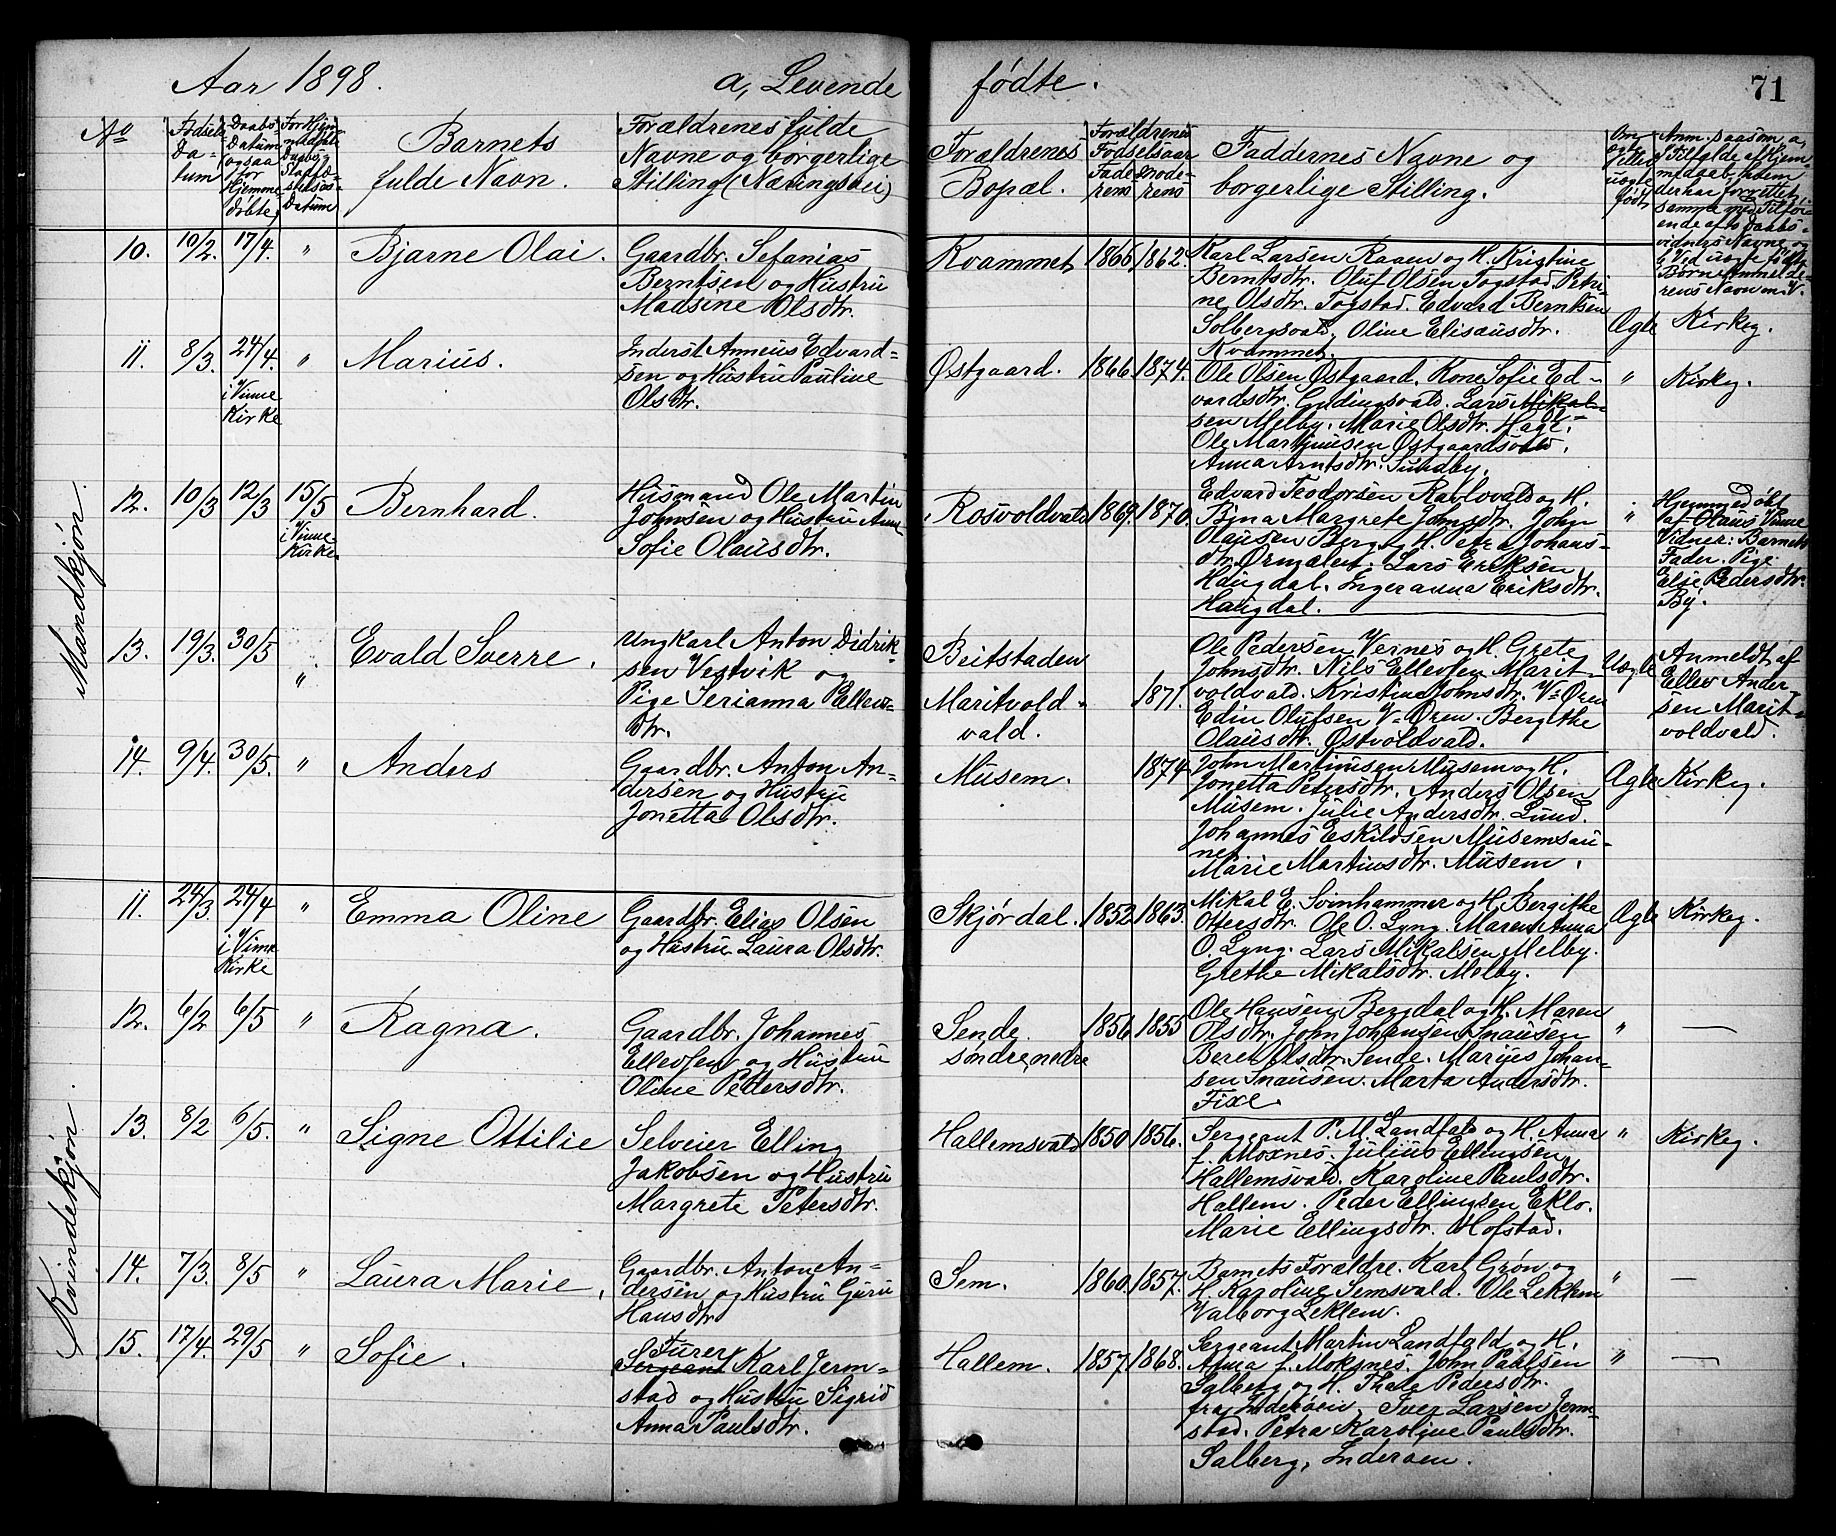 Aar 1898. a, Levende fødte. 71
No
Fødsels
Da-
tum
Daabs-
Datum
ogsaa
for
Hjemme
døbte
For Hjem-
medøbte
Daabs
Stadfæ-
stelses-
Datum
Barnets
fulde Navn.
Forældrenes fulde
Navne og borgerlige
Stilling (Næringsvei)
Forældrenes
Bopæl.
Forældrenes
Fødselsaar
Fade-
rens
mode-
rens
Faddernes Navne og
borgerlige Stilling.
Om
ægte
eller
uægte
født
Anm. saasom a,
i Tilfælde af Hjem-
medaab, hvem
der har forrettet
samme med Tilføi-
ende af to Daabs-
vidners Navne og
b Ved uægte fødte
Børn Anmelde-
rens Navn m. V.
Mandkjøn.
10. 10/2. 17/4. " Bjarne Olai.
Gaardbr. Sefanias
Berntsen og Hustru
Madsine Olsdtr.
Kvammet 1866 1862.
Karl Larsen Raaen og H. Kristine
Berntsdtr. Oluf Olsen Togstad. Petri-
ne Olsdtr. Togstad. Edvard Berntsen
Solbergsvald, Oline Elisæusdtr.
Kvammet.
Ægte Kirkeg.
11. 8/3. 24/4. " Marius.
i Vinne
Kirke
Inderst Anneus Edvard-
sen og Hustru Pauline
Olsdtr.
Østgaard. 1866. 1874.
Ole Olsen Østgaard. Kone Sofie Ed-
vardsdtr. Gudingsvald. Lars Mikal-
sen Melby. Marie Olsdtr. Hage.
Ole Martinusen Østgaardsvald.
Anna Arntsdtr. Sundby.
" Kirkeg.
12. 10/3 12/3 15/5 Bernhard.
i Vinne
Kirke
Husmand Ole Martin
Johnsen og Hustru Anne
Sofie Olausdtr.
Rosvoldvald 1869. 1870.
Edvard Teodorsen Ravlovald og H.
Margrete Johnsdtr. John
Olausen Berg og H. Petra Johans-
dtr. Ørmelen. Lars Eriksen
Haugdal. Ingeranna Eriksdtr.
Haugdal.
" Hjemmedøbt
af Olaus Vinne
Vidner: Barnets
Fader. Pige
Else Pedersdtr.
By.
13. 19/3. 30/5 " Evald Sverre.
Ungkarl Anton Didrik-
sen Vestvik og
Pige Serianna Ellevs-
dtr.
Beitstaden
Maritvold-
vald.
1871.
Ole Pedersen Vernes og H. Grete
Johnsdtr. Nils Ellevsen Marit-
voldvald. Kristine Johnsdtr. V=Ørem
Edin Olufsen V=Ørem. Bergithe
Olausdtr. Østvoldvald.
Uægte Anmeldt af
Ellev Ander-
sen Marit-
voldvald.
14. 9/4. 30/5. " Anders
Gaardbr. Anton An-
dersen og Hustru
Jonetta Olsdtr.
Musem. 1874
John Martinusen Musem og H.
Jonetta Petersdtr. Anders Olsen
Musem. Julie Andersdtr. Lund.
Johannes Eskildsen Musemsau-
ne
Marie Martinusdtr. Musem.
Ægte Kirkeg.
Kvindekjøn
11. 24/3 24/4 " Emma Oline
i Vinne
Kirke
Gaardbr. Elias Olsen
og Hustru Laura Olsdtr.
Skjørdal. 1852 1863.
Mikal E. Svinhammer og H. Bergithe
Ottersdtr. Ole O. Lyng. Maren Anna
O. Lyng. Lars Mikalsen Melby.
Grethe Mikalsdtr. Melby.
Ægte Kirkeg.
12. 6/2 6/5 " Ragna.
Gaardbr. Johannes
Ellevsen og Hustru
Oline Pedersdtr.
Sende.
søndre, nedre
1856 1855
Ole Hansen Bergdal og H. Maren
Olsdtr. John Johansen Snausen
Beret Olsdtr. Sende. Marius Johan-
sen Snausen. Marta Andersdtr.
Fixe.
" —
13. 8/2 6/5. " Signe Ottilie
Selveier Elling
Jakobsen og Hustru
Margrete Petersdtr.
Hallemsvald 1850 1856.
Sergeant P. M. Landfald og H. Anna
f. Moxnes. Julius Ellingsen
Hallemsvald. Karoline Paulsdtr.
Hallem. Peder Ellingsen Eklo.
Marie Ellingsdtr. Hofstad.
" Kirkeg.
14. 7/3. 8/5 " Laura Marie.
Gaardbr. Anton An-
dersen og Hustru Guru
Hansdtr
Sem. 1860. 1857.
Barnets Forældre. Karl Grøn og
H. Karoline Semsvald. Ole Leklem
Valborg Leklem.
" —
15. 17/4. 29/5 " Sofie.
Furer
Sergeant Karl Jerm-
stad og Hustru Sigrid
Anna Paulsdtr.
Hallem. 1857. 1868.
Sergeant Martin Landfald og H.
Anna f. Moksnes. John Paulsen
Salberg og H. Thale Pedersdtr.
fra Inderøen, Iver Larsen Jerm-
stad. Petra Karoline Paulsdtr.
Salberg, Inderøen.
" —